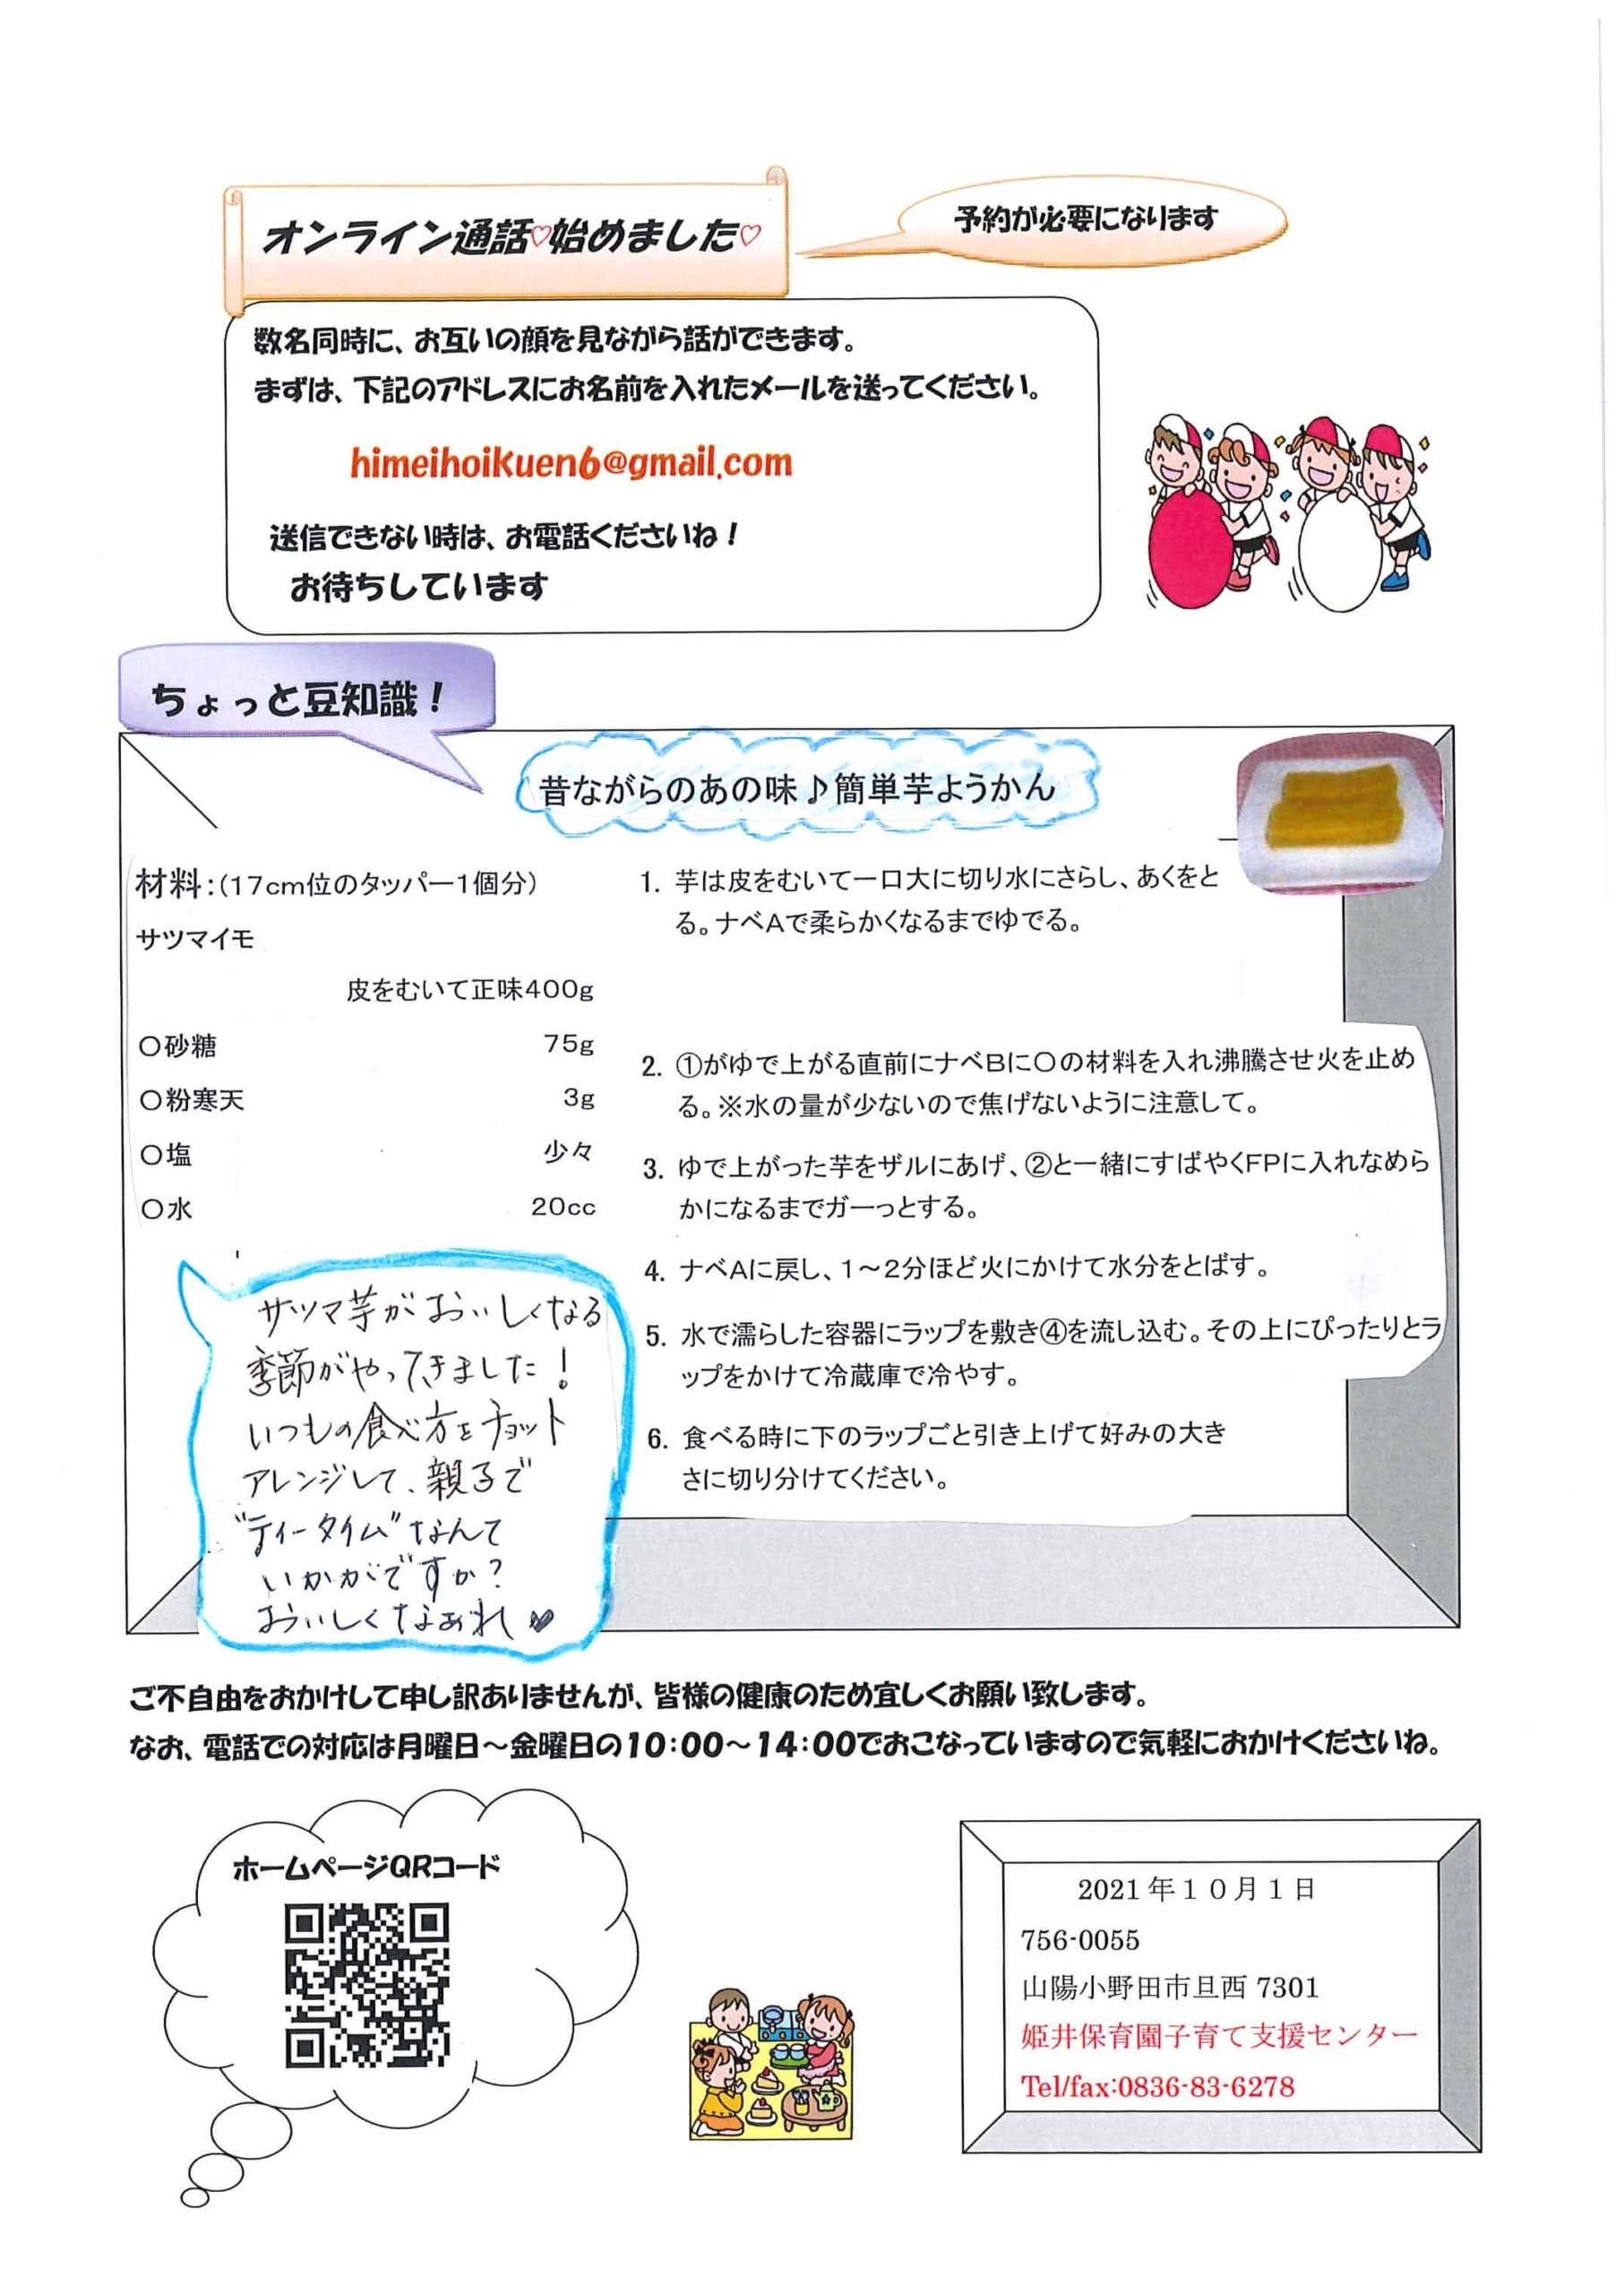 オンライン通話♡始めました♡
予約が必要になります
数名同時に、お互いの顔を見ながら話ができます。
まずは、下記のアドレスにお名前を入れたメールを送ってください。
himeihoikuen6@gmail.com
送信できない時は、お電話くださいね！
お待ちしています
ちょっと豆知識！
昔ながらのあの味♪簡単芋ようかん
材料：（17cm位のタッパー1個分）
サツマイモ
皮をむいて正味400g
〇砂糖 75g
〇粉寒天 3g
〇塩 少々
〇水 20cc
1. 芋は皮をむいて一口大に切り水にさらし、あくをと
る。ナベAで柔らかくなるまでゆでる。
2. ①がゆで上がる直前にナベBに〇の材料を入れ沸騰させ火を止め
る。※水の量が少ないので焦げないように注意して。
3. ゆで上がった芋をザルにあげ、②と一緒にすばやくFPに入れなめら
かになるまでガーっとする。
4. ナベAに戻し、1～2分ほど火にかけて水分をとばす。
5. 水で濡らした容器にラップを敷き④を流し込む。その上にぴったりとラ
ップをかけて冷蔵庫で冷やす。
6. 食べる時に下のラップごと引き上げて好みの大き
さに切り分けてください。
サツマ芋がおいしくなる
季節がやってきました！
いつもの食べ方をチョット
アレンジして、親子で
“ティータイム”なんて
いかがですか？
おいしくなぁれ♥
ご不自由をおかけして申し訳ありませんが、皆様の健康のため宜しくお願い致します。
なお、電話での対応は月曜日～金曜日の10：00～14：00でおこなっていますので気軽におかけくださいね。
ホームページQRコード
2021年１０月１日
756-0055
山陽小野田市旦西 7301
姫井保育園子育て支援センター
Tel/fax:0836-83-6278